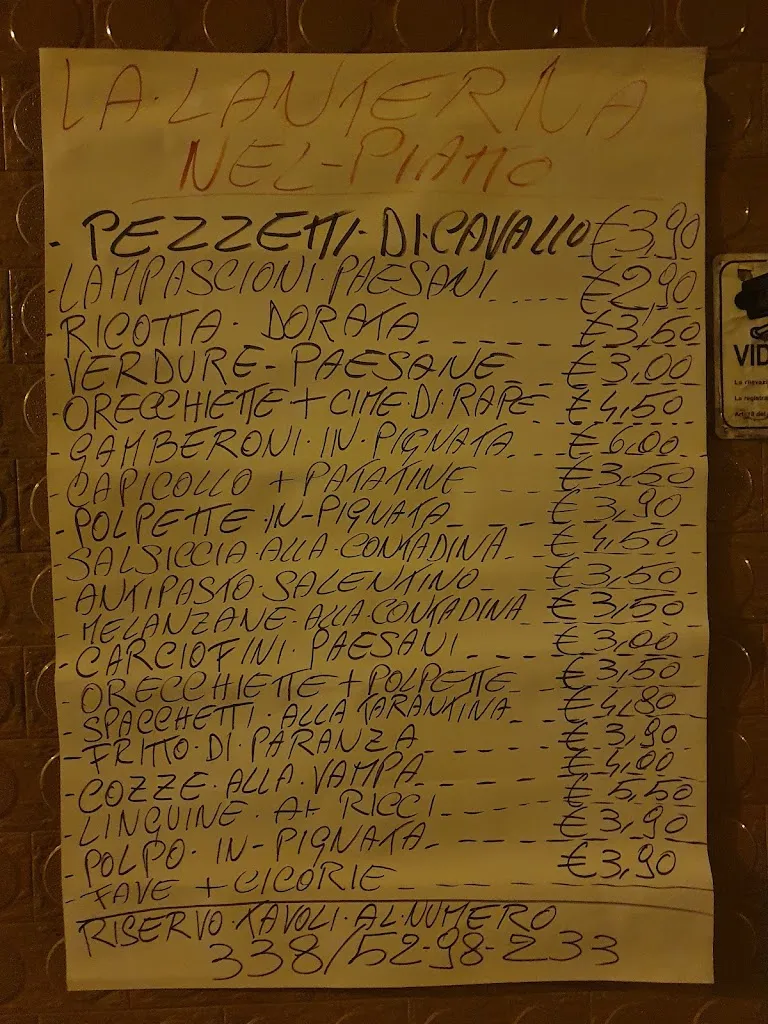 LA·LANTERNA
NEL-PIATTO
- PEZZETTI·DI·CAVALLO €3,90
- LAMPASCIONI·PAESANI €2,90
- RICOTTA· DORATA €3,50
- VERDURE- PAESANE €3,00
- ORECCHIETTE + CIME·DI·RAPE €4,50
- GAMBERONI·IN·PIGNATA €6,00
- CAPICOLLO + PATATINE €3,50
- POLPETTE·IN-PIGNATA €3,90
- SALSICCIA·ALLA·CONTADINA €4,50
- ANTIPASTO·SALENTINO €3,50
- MELANZANE·ALLA·CONTADINA €3,50
- CARCIOFINI·PAESANI €3,00
- ORECCHIETTE+POLPETTE €3,50
- SPACCHETTI·ALLA·TARANTINA €4,80
- FRITTO·DI·PARANZA €3,90
- COZZE·ALLA·VAMPA €4,00
- LINGUINE· AI· RICCI €5,50
- POLPO· IN-PIGNATA €3,90
- FAVE + CICORIE €3,90
RISERVO·TAVOLI·AL·NUMERO
338/52-98-233
VID
La registra